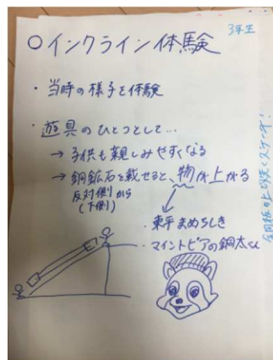 ○インクライン体験
3年生
・当時の様子を体験
・遊具のひとつとして…
→子供も親しみやすくなる
→銅鉱石を載せると、物が上がる
反対側から
(下側)
・東平まめちしき
・マイントピアの銅太くん